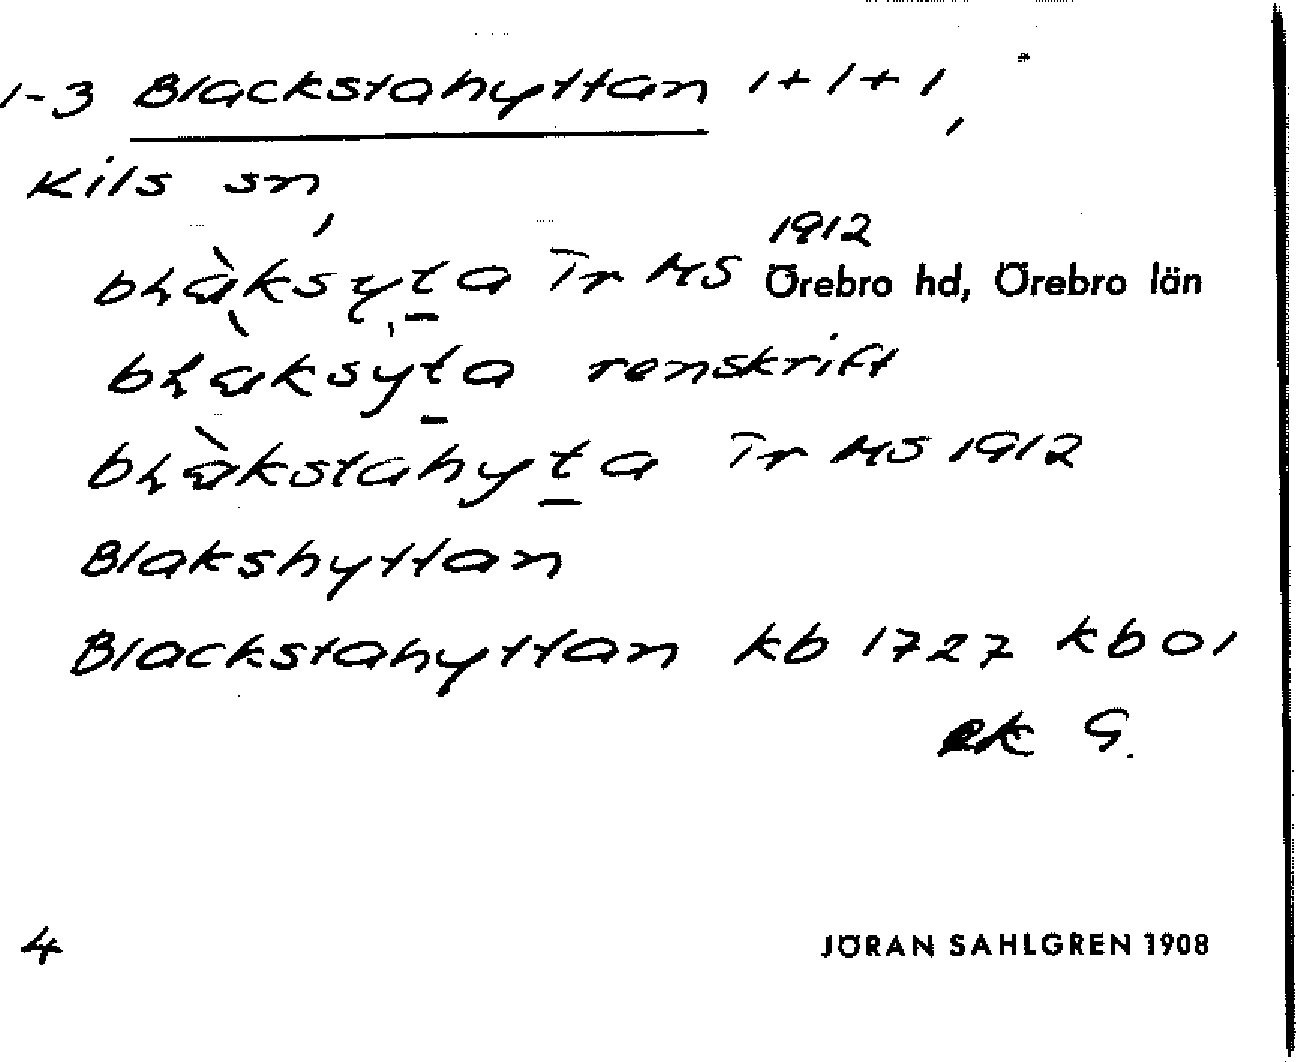 1-3 Blackstahyttan 1+1+1,
Kils sn,
1912
bɫàksyta Tr MS Örebro hd, Örebro län
bɫàksy̍ta renskrift
bɫàkstahyta Tr MS 1912
Blakshyttan
Blackstahyttan kb 1727 kb 01
ek G.
4 JÖRAN SAHLGREN 1908